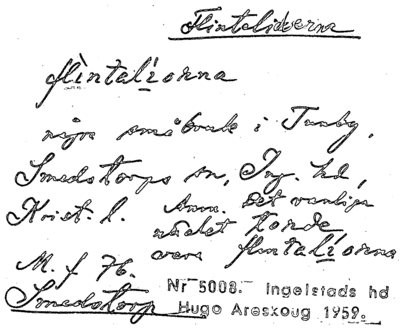 Flintaliderna
flìntalíorna
några småbruk i Tunby,
Smedstorps sn, Ing. hd,
Krist. l. Anm. Det vanliga
nådet torde
vara flintalíorna
M. f 76.
Smedstorp
Nr 5008. Ingelstads hd
Hugo Areskoug 1959.